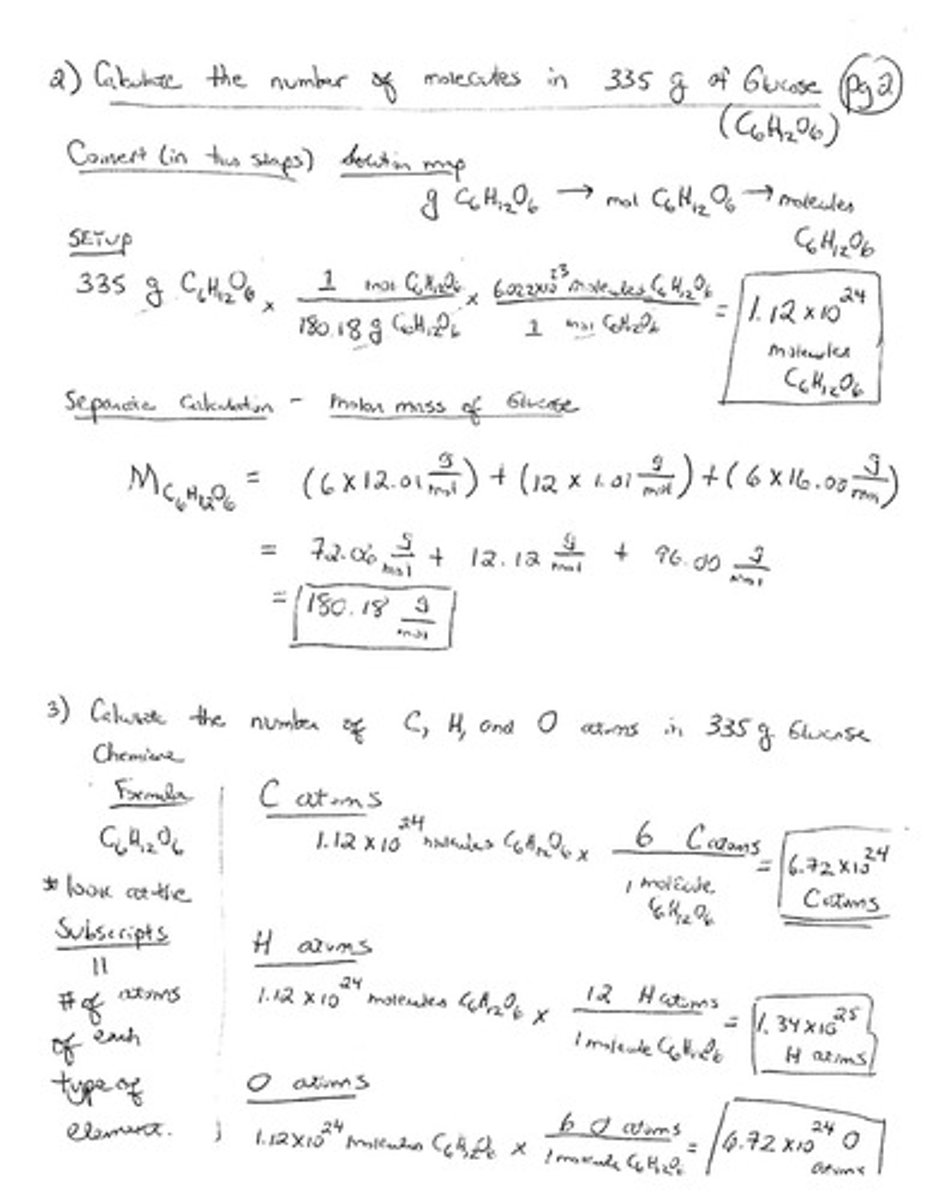 2) Calculate the number of molecules in 335 g of Glucose (pg 2)
(C6H12O6)
Convert (in two steps) Solution map
g C6H12O6 → mol C6H12O6 → molecules
C6H12O6
SETUP
335 g C6H12O6 × 1 mol C6H12O6 / 180.18 g C6H12O6 × 6.022×10^23 molecules C6H12O6 / 1 mol C6H12O6 = 1.12 × 10^24
molecules
C6H12O6
Separate Calculation - molar mass of Glucose
M C6H12O6 = (6 × 12.01 g/mol) + (12 × 1.01 g/mol) + (6 × 16.00 g/mol)
= 72.06 g/mol + 12.12 g/mol + 96.00 g/mol
= 180.18 g/mol
3) Calculate the number of C, H, and O atoms in 335 g Glucose
Chemical
Formula
C6H12O6
* look at the
Subscripts
||
# of atoms
of each
type of
element.
C atoms
1.12 × 10^24 molecules C6H12O6 × 6 C atoms / 1 molecule C6H12O6 = 6.72 × 10^24
C atoms
H atoms
1.12 × 10^24 molecules C6H12O6 × 12 H atoms / 1 molecule C6H12O6 = 1.34 × 10^25
H atoms
O atoms
1.12×10^24 molecules C6H12O6 × 6 O atoms / 1 molecule C6H12O6 = 6.72 × 10^24 O
atoms